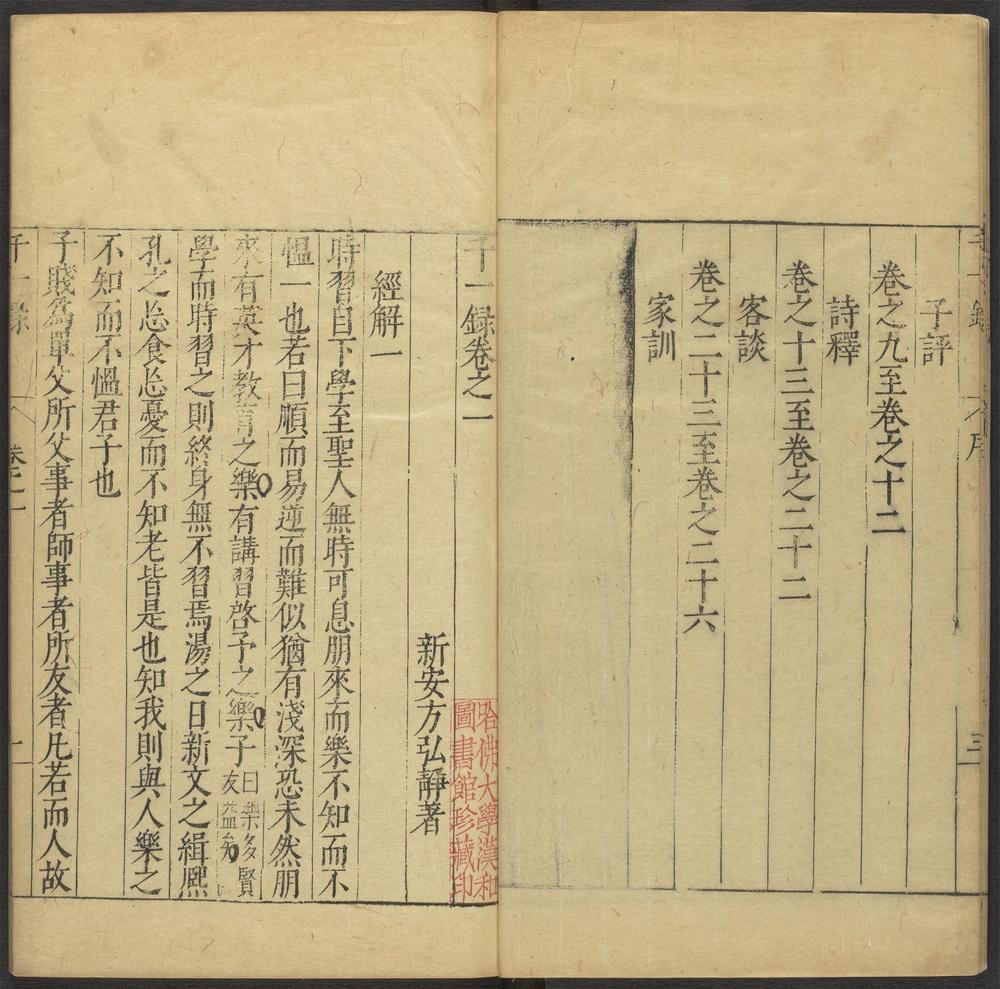 子評
卷之九至卷之十二
詩釋
卷之十三至卷之二十二
客談
卷之二十三至卷之二十六
家訓
三
千一録卷之一
新安方弘靜著
經解一
時習自下學至聖人無時可息朋來而樂不知而不
慍一也若曰順而易逆而難似猶有淺深恐未然朋
來有英才教育之樂有講習啓予之樂子曰樂多賢友益矣
學而時習之則終身無不習焉湯之日新文之緝熈
孔之忘食忘憂而不知老皆是也知我則與人樂之
不知而不慍君子也
子賤爲單父所父事者師事者所友者凡若而人故
千一録
卷之一
一
哈佛大學漢和
圖書館珍藏印